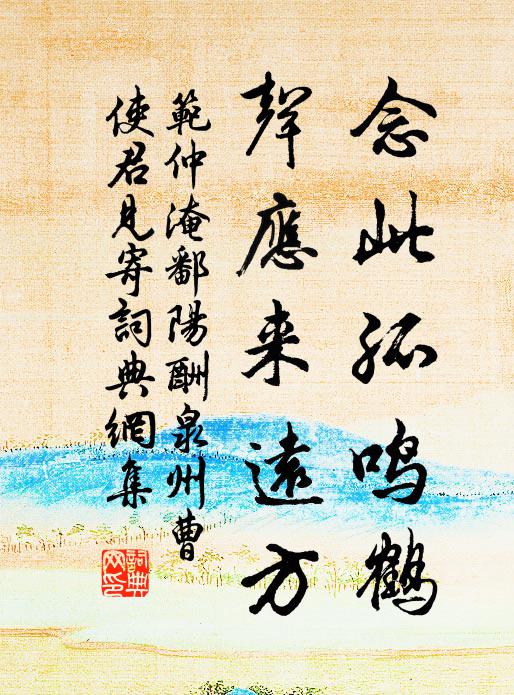 念此孤鸣鹤
聲應来遠方
範仲淹鄱陽酬泉州曹
使君見寄詞典網集
詞典
网印